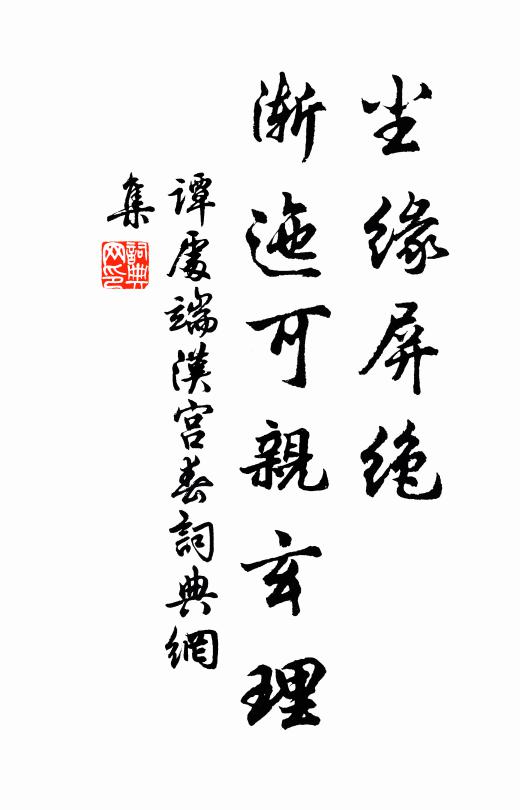 尘缘屏绝
渐迤可親玄理
谭處端漢宫春詞典網
集
詞典网印